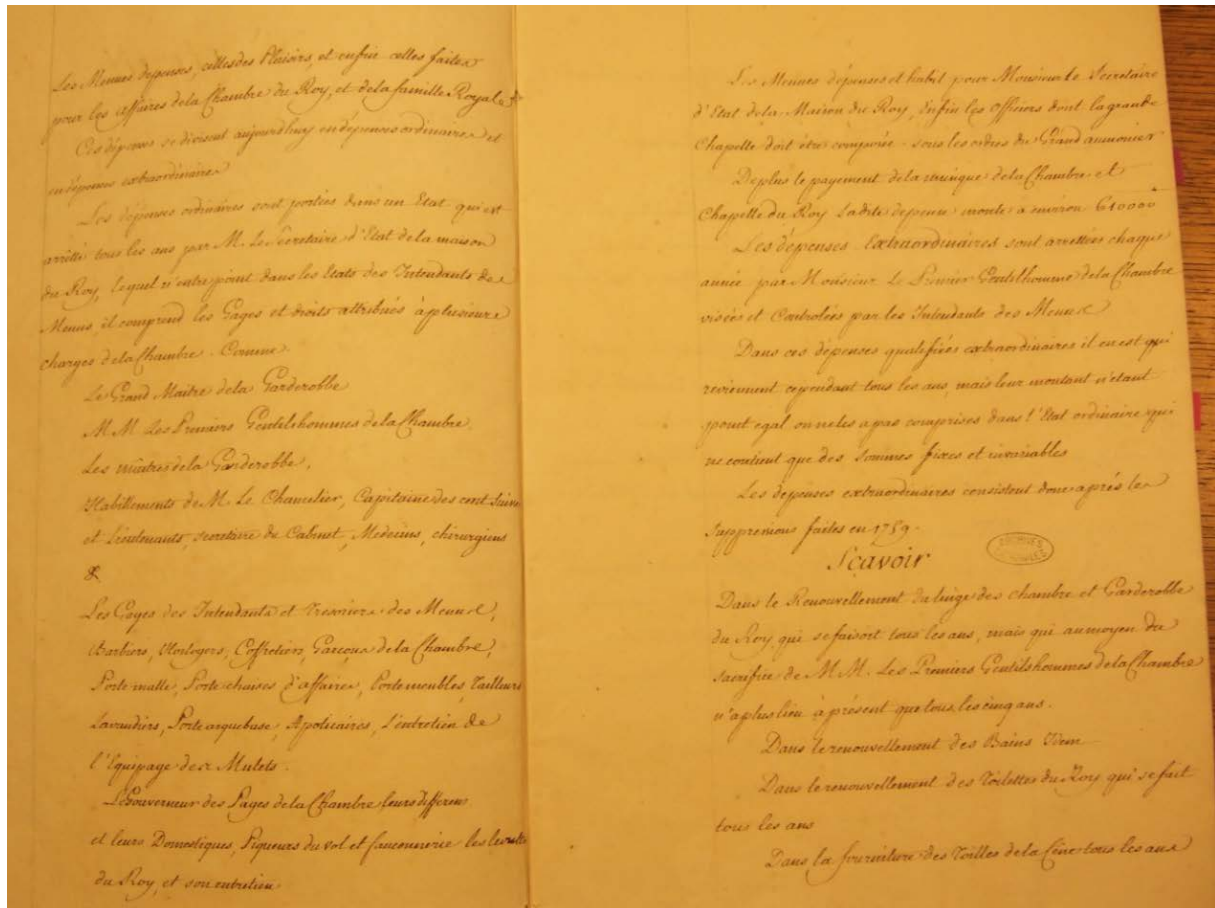 Les Menues depenses, celles des Plaisirs, et enfin celles faites
pour les affaires de la Chambre du Roy, et de la famille Royale
Ces depenses se divisent aujourd'huy en depenses ordinaires et
en depenses extraordinaires
Les depenses ordinaires sont portées dans un Etat qui est
arrêté tous les ans par M. Le Secretaire d'Etat de la maison
du Roy, lequel n'entre point dans les Etats des Intendants des
Menus, il comprend les Gages et droits attribués à plusieurs
charges de la Chambre. Comme
Le Grand Maitre de la Garderobbe
M.M. Les Premiers Gentilshommes de la Chambre.
Les maitres de la Garderobbe,
Habillements de M. Le Chancelier, Capitaine des cent Suisses
et Lieutenants, secretaire du Cabinet, Medecins, chirurgiens
&
Les Gages des Intendants et Tresoriers des Menus,
Barbiers, Horlogers, Coffretiers, Garçons de la Chambre,
Porte malle, Porte chaises d'affaires, Porte meubles, Tailleurs
Lavandiers, Porte arquebuse, Apoticaires, L'entretien de
l'Equipage des Mulets.
Le Gouverneur des Pages de la Chambre, leurs differens
et leurs Domestiques, Piqueurs du vol et fauconnerie les levrettes
du Roy, et son entretien
Les Menues dépenses et habit pour Monsieur le Secretaire
d'Etat de la Maison du Roy, Enfin les Officiers dont la grande
Chapelle doit être composée sous les ordres du Grand aumonier
Deplus le payement de la musique de la Chambre et
Chapelle du Roy Ladite depense monte a environ 610000
Les dépenses Extraordinaires sont arrettées chaque
année par Monsieur Le Premier Gentilhomme de la Chambre
visées et Controlées par les Intendants des Menus
Dans ces dépenses qualifiées extraordinaires il en est qui
reviennent cependant tous les ans, mais leur montant n'etant
point egal on ne les a pas comprises dans l'Etat ordinaire qui
ne contient que des sommes fixes et invariables
Les dépenses extraordinaires consistent donc après les
suppressions faites en 1759.
Sçavoir
ARCHIVES
Dans le Renouvellement du linge des chambre et Garderobbe
du Roy, qui se faisoit tous les ans, mais qui au moyen du
sacrifice de M.M. Les Premiers Gentilshommes de la Chambre
n'a plus lieu à présent que tous les cinq ans.
Dans le renouvellement des Bains Idem
Dans le renouvellement des Toilettes du Roy qui se fait
tous les ans
Dans la fourniture des Toilles de la Cêne tous les ans